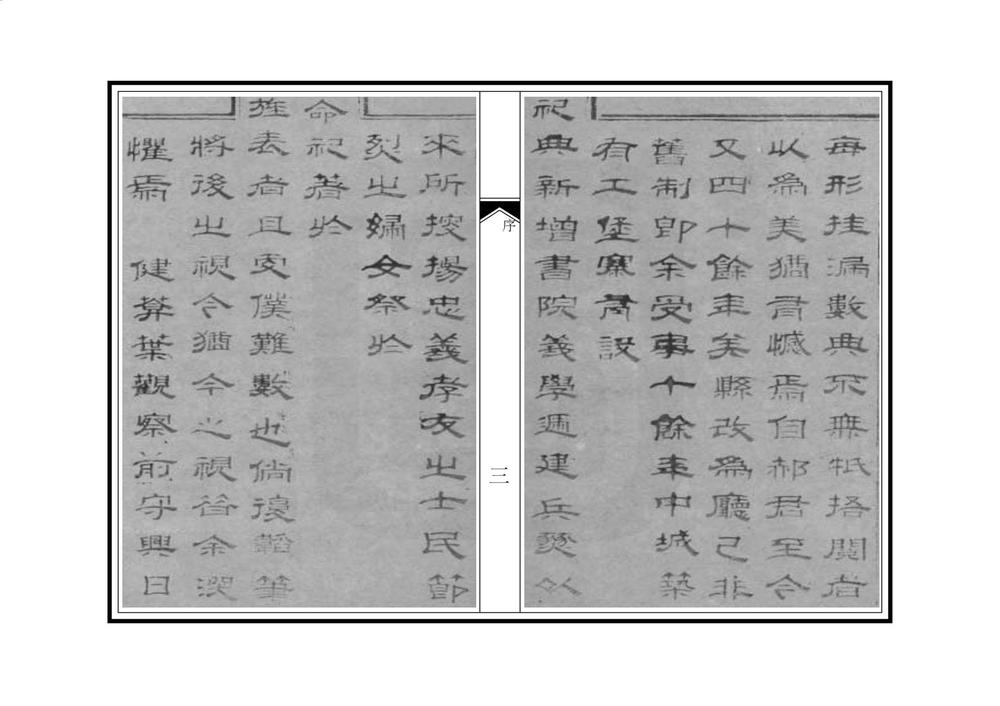 每形挂漏數典不無牴捂閱者
以為美猶有憾焉自郝君至今
又四十餘年矣縣改為廳已非
舊制即余受事十餘年中城築
有工堡寨有設
祀典新增書院義學遞建兵燹以
序
三
來所揚忠義孝友之士民節
烈之婦女祭於
命祀著於
旌表者且更僕難數也倘復韜筆
將後之視今猶今之視昔余滋
懼焉　健葊葉觀察前守興日